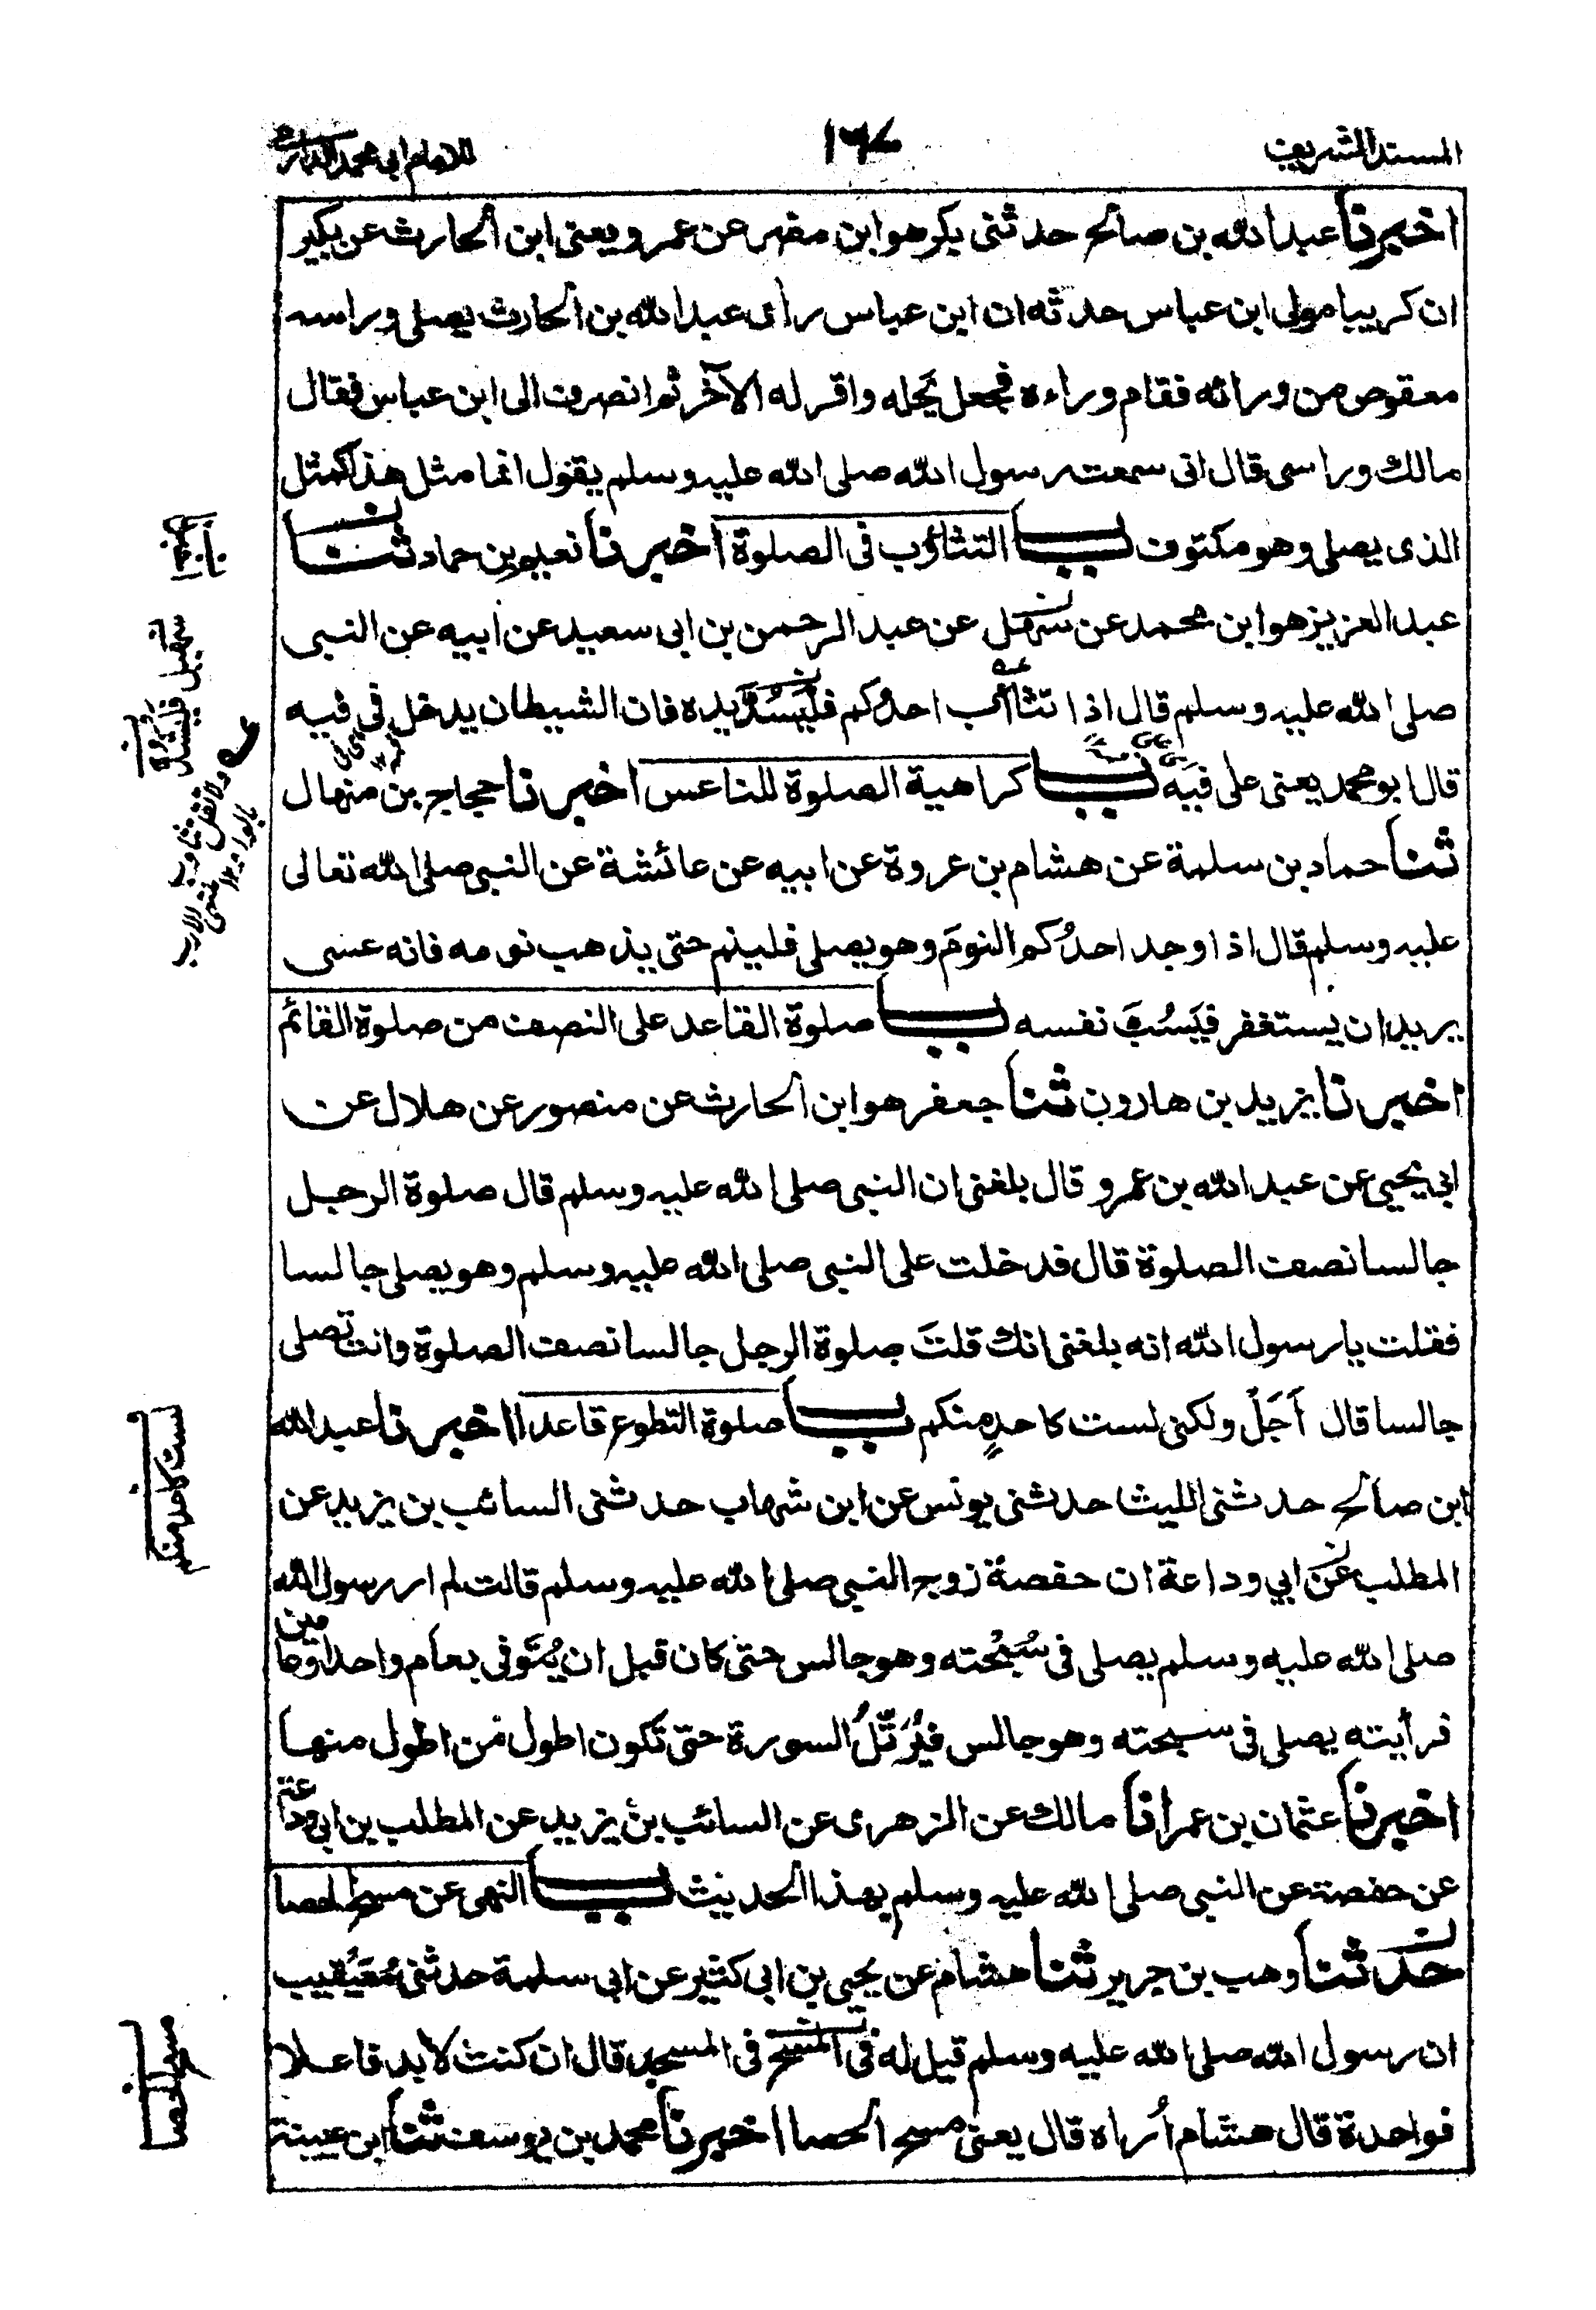 المسند الشريف
١٦٧
للامام ابي محمد الدارمي
اخبرنا عبد الله بن صالح حدثنى بكر هو ابن مضر عن عمرو يعنى ابن الحارث عن بكير
ان كريبا مولى ابن عباس حدثه ان ابن عباس راى عبد الله بن الحارث يصلى وراسه
معقوص من ورائه فقام وراءه فجعل يَحله واقر له الآخر ثم انصرف الى ابن عباس فقال
مالك وراسى قال انى سمعت رسول الله صلى الله عليه وسلم يقول انما مثل هذا كمثل
الذى يصلى وهو مكتوف باب التثاؤب فى الصلوة اخبرنا نعيم بن حماد ثنا
عبد العزيز هو ابن محمد عن سهل عن عبد الرحمن بن ابى سعيد عن ابيه عن النبى
صلى الله عليه وسلم قال اذا تثاأب احدُكم فليَسُدَّ يده فان الشيطان يدخل فى فيه
قال ابو محمد يعنى على فيَه باب كراهية الصلوة للناعس اخبرنا حجاج بن منهال
ثنا حماد بن سلمة عن هشام بن عروة عن ابيه عن عائشة عن النبى صلى الله تعالى
عليه وسلم قال اذا وجد احدُكم النومَ وهو يصلى فلينم حتى يذهب نومه فانه عسى
يريد ان يستغفر فيَسُبَّ نفسه باب صلوة القاعد على النصف من صلوة القائم
اخبرنا يزيد بن هارون ثنا جعفر هو ابن الحارث عن منصور عن هلال عن
ابى يحيى عن عبد الله بن عمرو قال بلغنى ان النبى صلى الله عليه وسلم قال صلوة الرجل
جالسا نصف الصلوة قال فدخلت على النبى صلى الله عليه وسلم وهو يصلى جالسا
فقلت يا رسول الله انه بلغنى انك قلتَ صلوة الرجل جالسا نصف الصلوة وانت تصلى
جالسا قال اَجَلْ ولكنى لست كاحدٍ منكم باب صلوة التطوع قاعدا اخبرنا عبد الله
ابن صالح حدثنى الليث حدثنى يونس عن ابن شهاب حدثنى السائب بن يزيد عن
المطلب عن ابي وداعة ان حفصة زوج النبى صلى الله عليه وسلم قالت لم ار رسول الله
صلى الله عليه وسلم يصلى فى سُبْحته وهو جالس حتى كان قبل ان يُتَوفى بعام واحد او عامين
فرأيته يصلى فى سبحته وهو جالس فيُرَتِّلُ السورة حتى تكون اطول من اطول منها
اخبرنا عثمان بن عمر انا مالك عن الزهرى عن السائب بن يزيد عن المطلب بن ابى وداعة
عن حفصة عن النبى صلى الله عليه وسلم بهذا الحديث باب النهى عن مسح الحصا
حدثنا وهب بن جرير ثنا هشام عن يحيى بن ابى كثير عن ابى سلمة حدثنى مُعَيْقيب
ان رسول الله صلى الله عليه وسلم قيل له فى المسح فى المسجد قال ان كنت لا بد فاعلا
فواحدة قال هشام اُراه قال يعنى مسح الحصا اخبرنا محمد بن يوسف ثنا ابن عيينة
سهيل
فليشد
ولا تقل تثاوب
بالواو
منتهى الارب
لست كاحد منكم
مسح الحصا